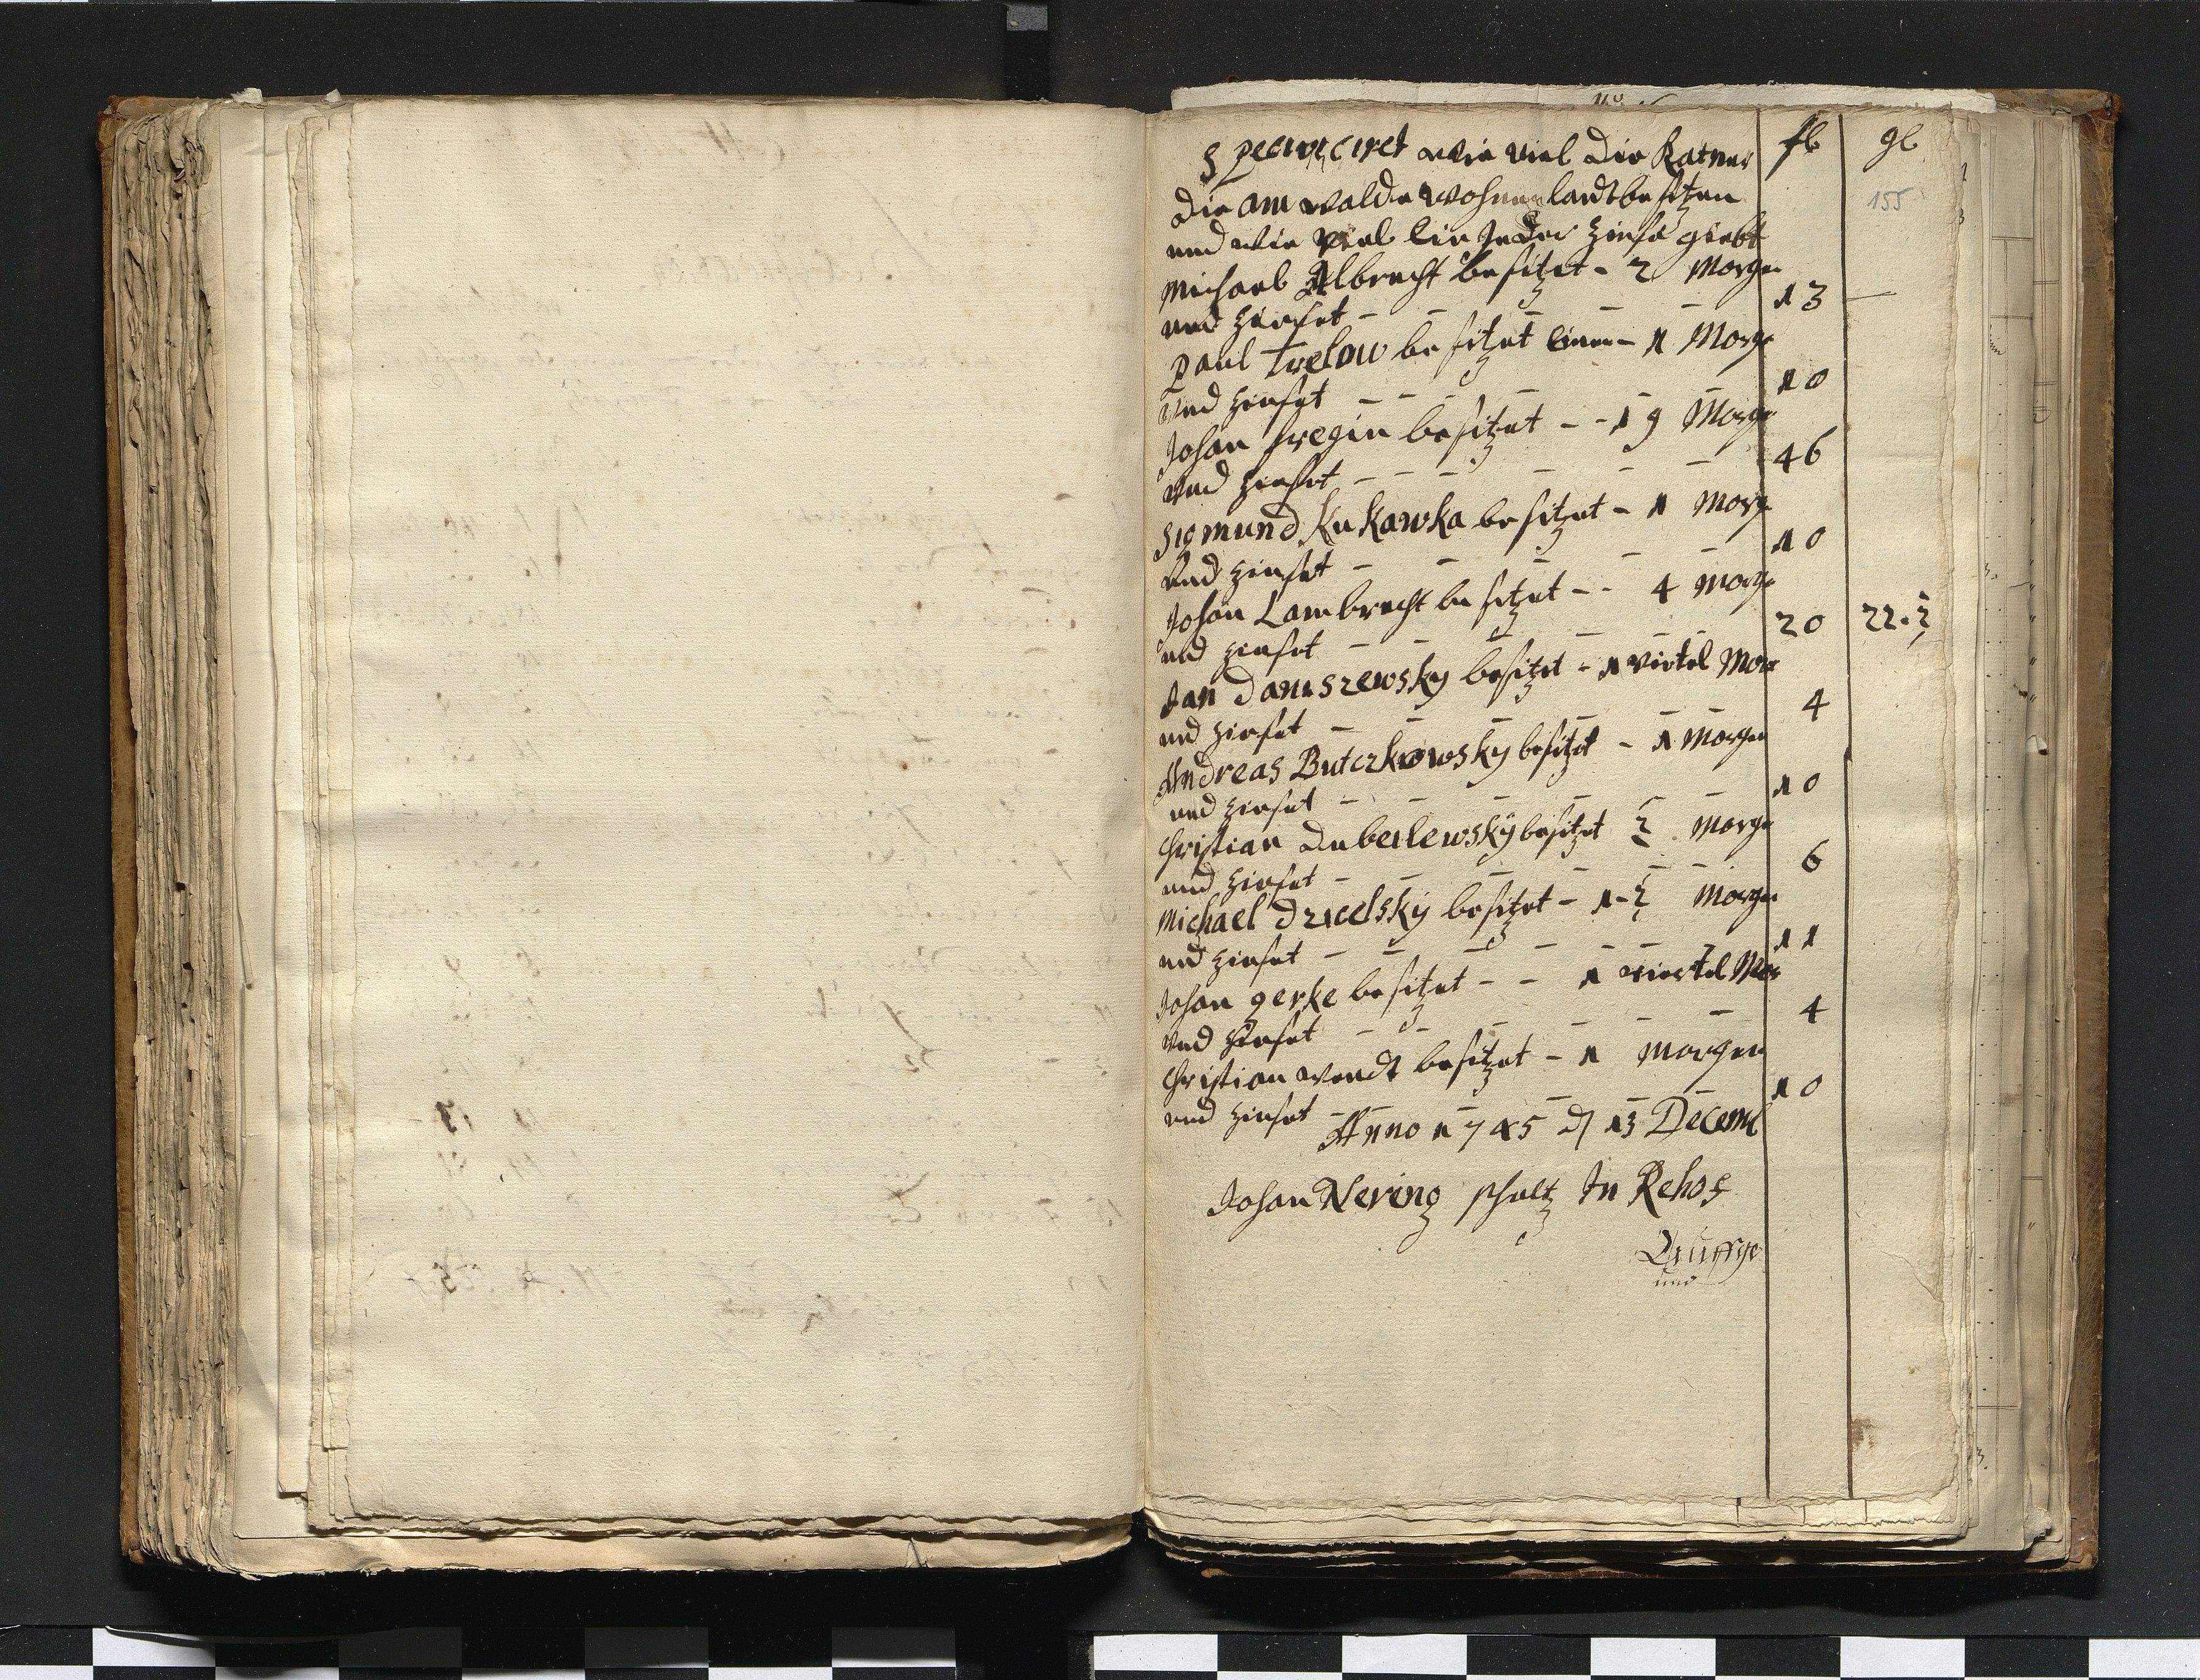 Specificiret wie viel die Katner fl gl
die am walde wohnen landt besitzen 155
und wie viel Ein Jeder Zinse giebt
Michael Albrecht besitzet - 2 Morgen
und Zinset - - - - - 13 —
Paul Trelow besitzet Einen - 1 Morge
und Zinset - - - - - 10
Johan Fregin besitzet - - 19 Morge
und Zinset - - - - - - 46
Sigmund Kukawka besitzet - 1 Morge
und Zinset - - - - 10
Johan Lambrecht besitzet - - 4 Morge
und Zinset - - - - - - 20 22 · ½
Jan Daniszewsky besitzet - 1 viertel Mor
und Zinset - - - - - - 4
Andreas Butczkowsky besitzet - 1 Morgen
und Zinset - - - - - 10
Christian Dubeilewsky besitzet ½ Morge
und Zinset - - - - - - 6
Michael Dzicelsky besitzet - 1 - ½ Morgen
und Zinset - - - - - - 11
Johan gerke besitzet - - 1 viertel Mor
und Zinset - - - - - - 4
Christian Wendt besitzet - 1 Morgen
und Zinset - - - - - 10
Anno 1745 d 13 Decemb
Johan Nering Schultz In Rehof
und